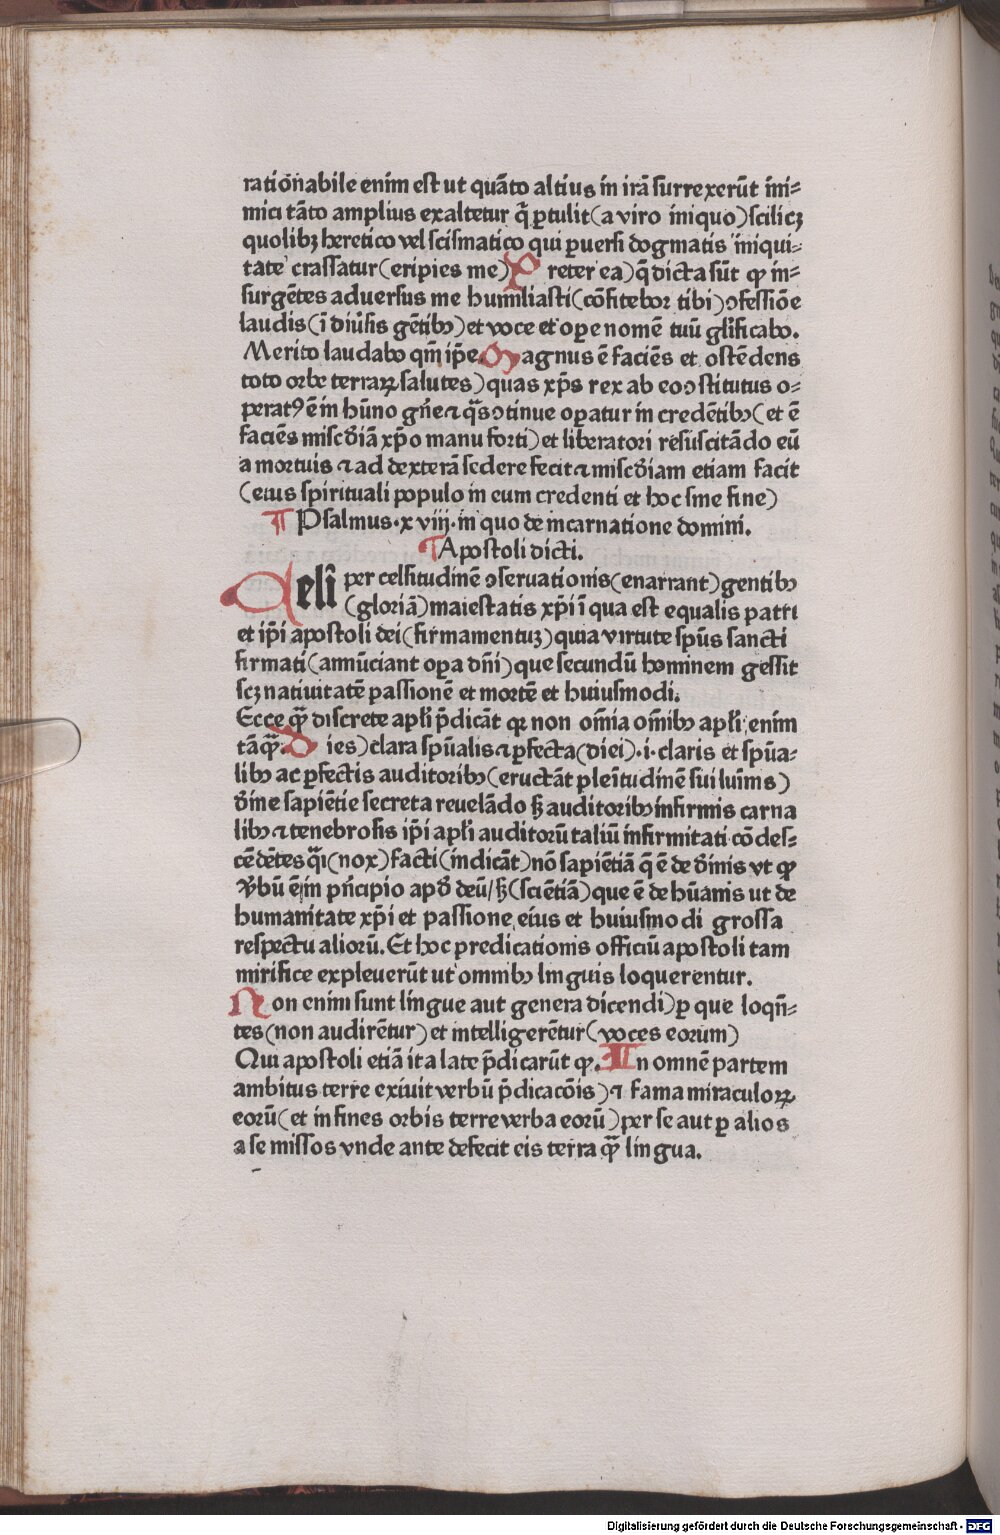 rationabile enim est ut quāto altius in irā surrexerūt ini⸗
mici tāto amplius exaltetur q̄ ꝑtulit (a viro iniquo) scilicꝫ
quolibꝫ heretico vel scismatico qui ꝑuersi dogmatis iniqui⸗
tate crassatur (eripies me) P reter ea) q̄ dicta sūt ꝙ in⸗
surgētes adversus me humiliasti (cōfitebor tibi) ꝯfessiōe
laudis (ī diūsis gētibꝫ) et voce et oꝑe nomē tuū glīficabo.
Merito laudabo qm̄ ip̄e. M agnus ē faciēs et ostēdens
toto orbe terraꝝ salutes) quas xp̄s rex ab eo ꝯstitutus o⸗
peratꝰ ē in hūno gn̄e ⁊ q̄s ꝯtinue oꝑatur in credētibꝫ (et ē
faciēs misc̄diā xp̄o manu forti) et liberatori resuscitādo eū
a mortuis ⁊ ad dexterā sedere fecit ⁊ misc̄diam etiam facit
(eius spirituali populo in eum credenti et hoc sine fine)
¶ Psalmus · xviij · in quo de incarnatione domini.
¶ Apostoli dicti.
Celi per celsitudinē ꝯseruationis (enarrant) gentibꝫ
(gloriā) maiestatis xp̄i ī qua est equalis patri
et ip̄i apostoli dei (firmamentuꝫ) quia virtute sp̄us sancti
firmati (annūciant oꝑa dn̄i) que secundū hominem gessit
scꝫ nativitatē passionē et mortē et huiusmodi.
Ecce qᷓꝫ discrete apl̄i p̄dicāt qꝛ non om̄ia om̄ibꝫ apl̄i enim
tāqᷓꝫ. D ies) clara sp̄ualis ⁊ ꝑfecta (diei) · i · claris et sp̄ua⸗
libꝫ ac ꝑfectis auditoribꝫ (eructāt plenitudinē sui luīnis)
diīne sapiētie secreta revelādo sꝫ auditoribꝫ infirmis carna
libꝫ ⁊ tenebrosis ip̄i apl̄i auditorū taliū infirmitati cōdes⸗
cēdētes q̄i (nox) facti (indicāt) nō sapiētiā q̄ ē de diīnis vt ꝙ
v̄bū ē in pn̄cipio apd̄ deū / sꝫ (sciētiā) que ē de hūanis ut de
humanitate xp̄i et passione eius et huiusmodi grossa
respectu aliorū. Et hoc predicationis officiū apostoli tam
mirifice expleuerūt ut omnibꝫ linguis loquerentur.
N on enim sunt lingue aut genera dicendi) ꝑ que loqn̄⸗
tes (non audirētur) et intelligerētur (voces eorum)
Qui apostoli etiā ita late p̄dicarūt ꝙ. I n omnē partem
ambitus terre exivit verbū p̄dicacōis) ⁊ fama miraculoꝝ
eorū (et in fines orbis terre verba eorū) per se aut ꝑ alios
a se missos vnde ante defecit eis terra qᷓꝫ lingua.
Digitalisierung gefördert durch die Deutsche Forschungsgemeinschaft - DFG